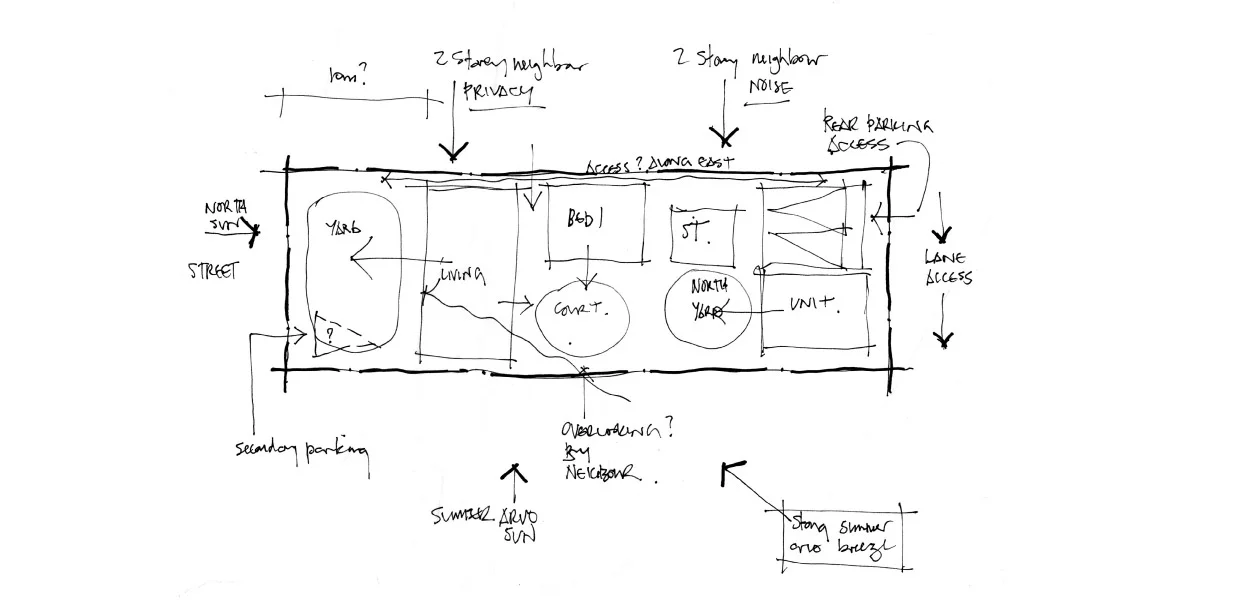 10m?
2 Storey neighbour
PRIVACY
2 Story neighbour
NOISE
REAR PARKING
ACCESS
ACCESS? ALONG EAST
NORTH
SUN
STREET
YARD
LIVING
?
BED 1
COURT.
ST.
NORTH
YARD
UNIT.
LANE
ACCESS
secondary parking
OVERLOOKING?
By
NEIGHBOUR.
SUMMER ARVO
SUN
Strong summer
arvo breeze